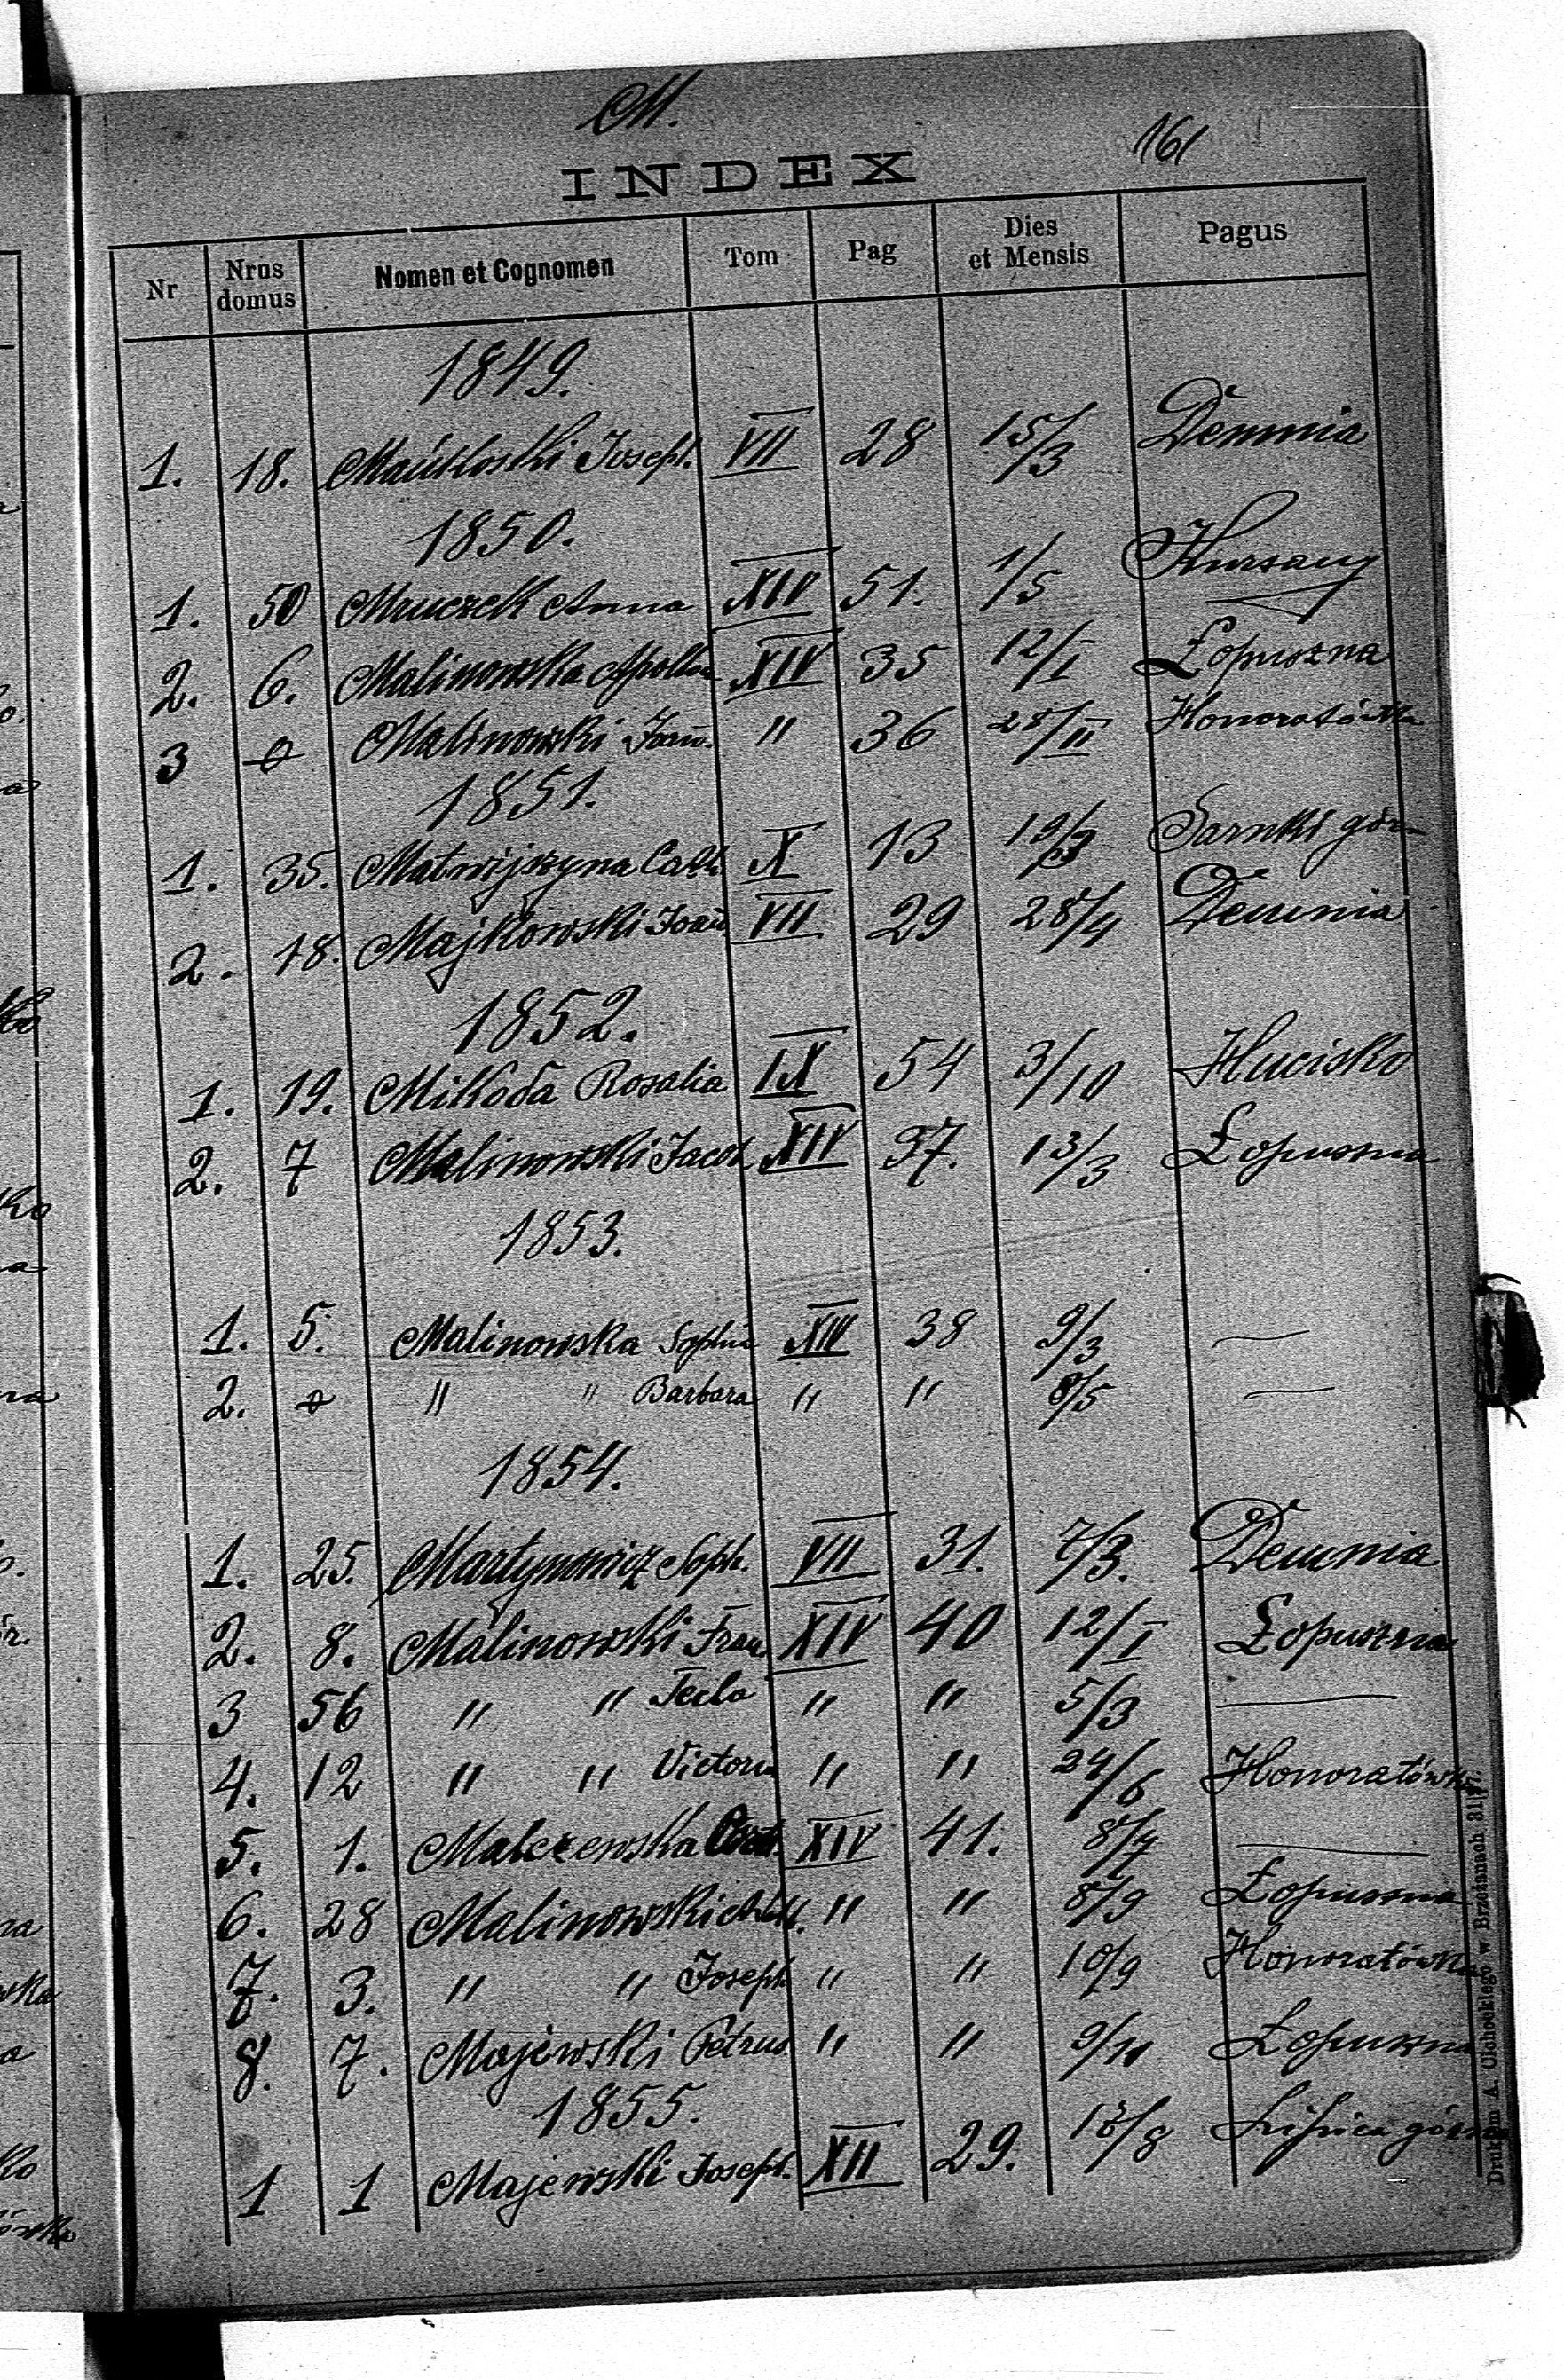 M.
161
INDEX
Nr Nrus domus Nomen et Cognomen Tom Pag Dies et Mensis Pagus
1849.
1. 18. Joseph. VII 28 15/3 Demnia
1850.
1. 50 Mruczek Anna XIV 51. 1/5 Kurzany
2. 6. Malinowska Apollon XIV 35 12/I Łopuszna
3 Malinowski Joan. " 36 25/II Honoratówka
1851.
1. 35. Matwijszyna Cath X 13 19/3 Sarnki gór
2. 18. Majkowski Joan VII 29 28/4 Demnia
1852.
1. 19. Mikoda Rosalia IX 54 3/10 Hucisko
2. 7 Malinowski Jacob XIV 37. 13/3 Łopuszna
1853.
1. 5. Malinowska Sophia XIV 38 9/3 —
2. " " Barbara " " 8/5 —
1854.
1. 25. Martynowicz Soph. VII 31. 7/3. Demnia
2. 8. Malinowski Fran XIV 40 12/I Łopuszna
3 56 " " Tecla " " 5/3 —
4. 12 " " Victoria " " 24/6 Honoratówka
5. 1. Malczewska XIV 41. —
6. 28 Malinowski " " 8/9 Łopuszna
7. 3. " " Joseph " " 10/9 Honoratówka
8. 7. Majewski Petrus " " Łopuszna
1855.
1 1 Majewski Joseph. XII 29. Lipica górna
Drukiem A. w Brzeżanach